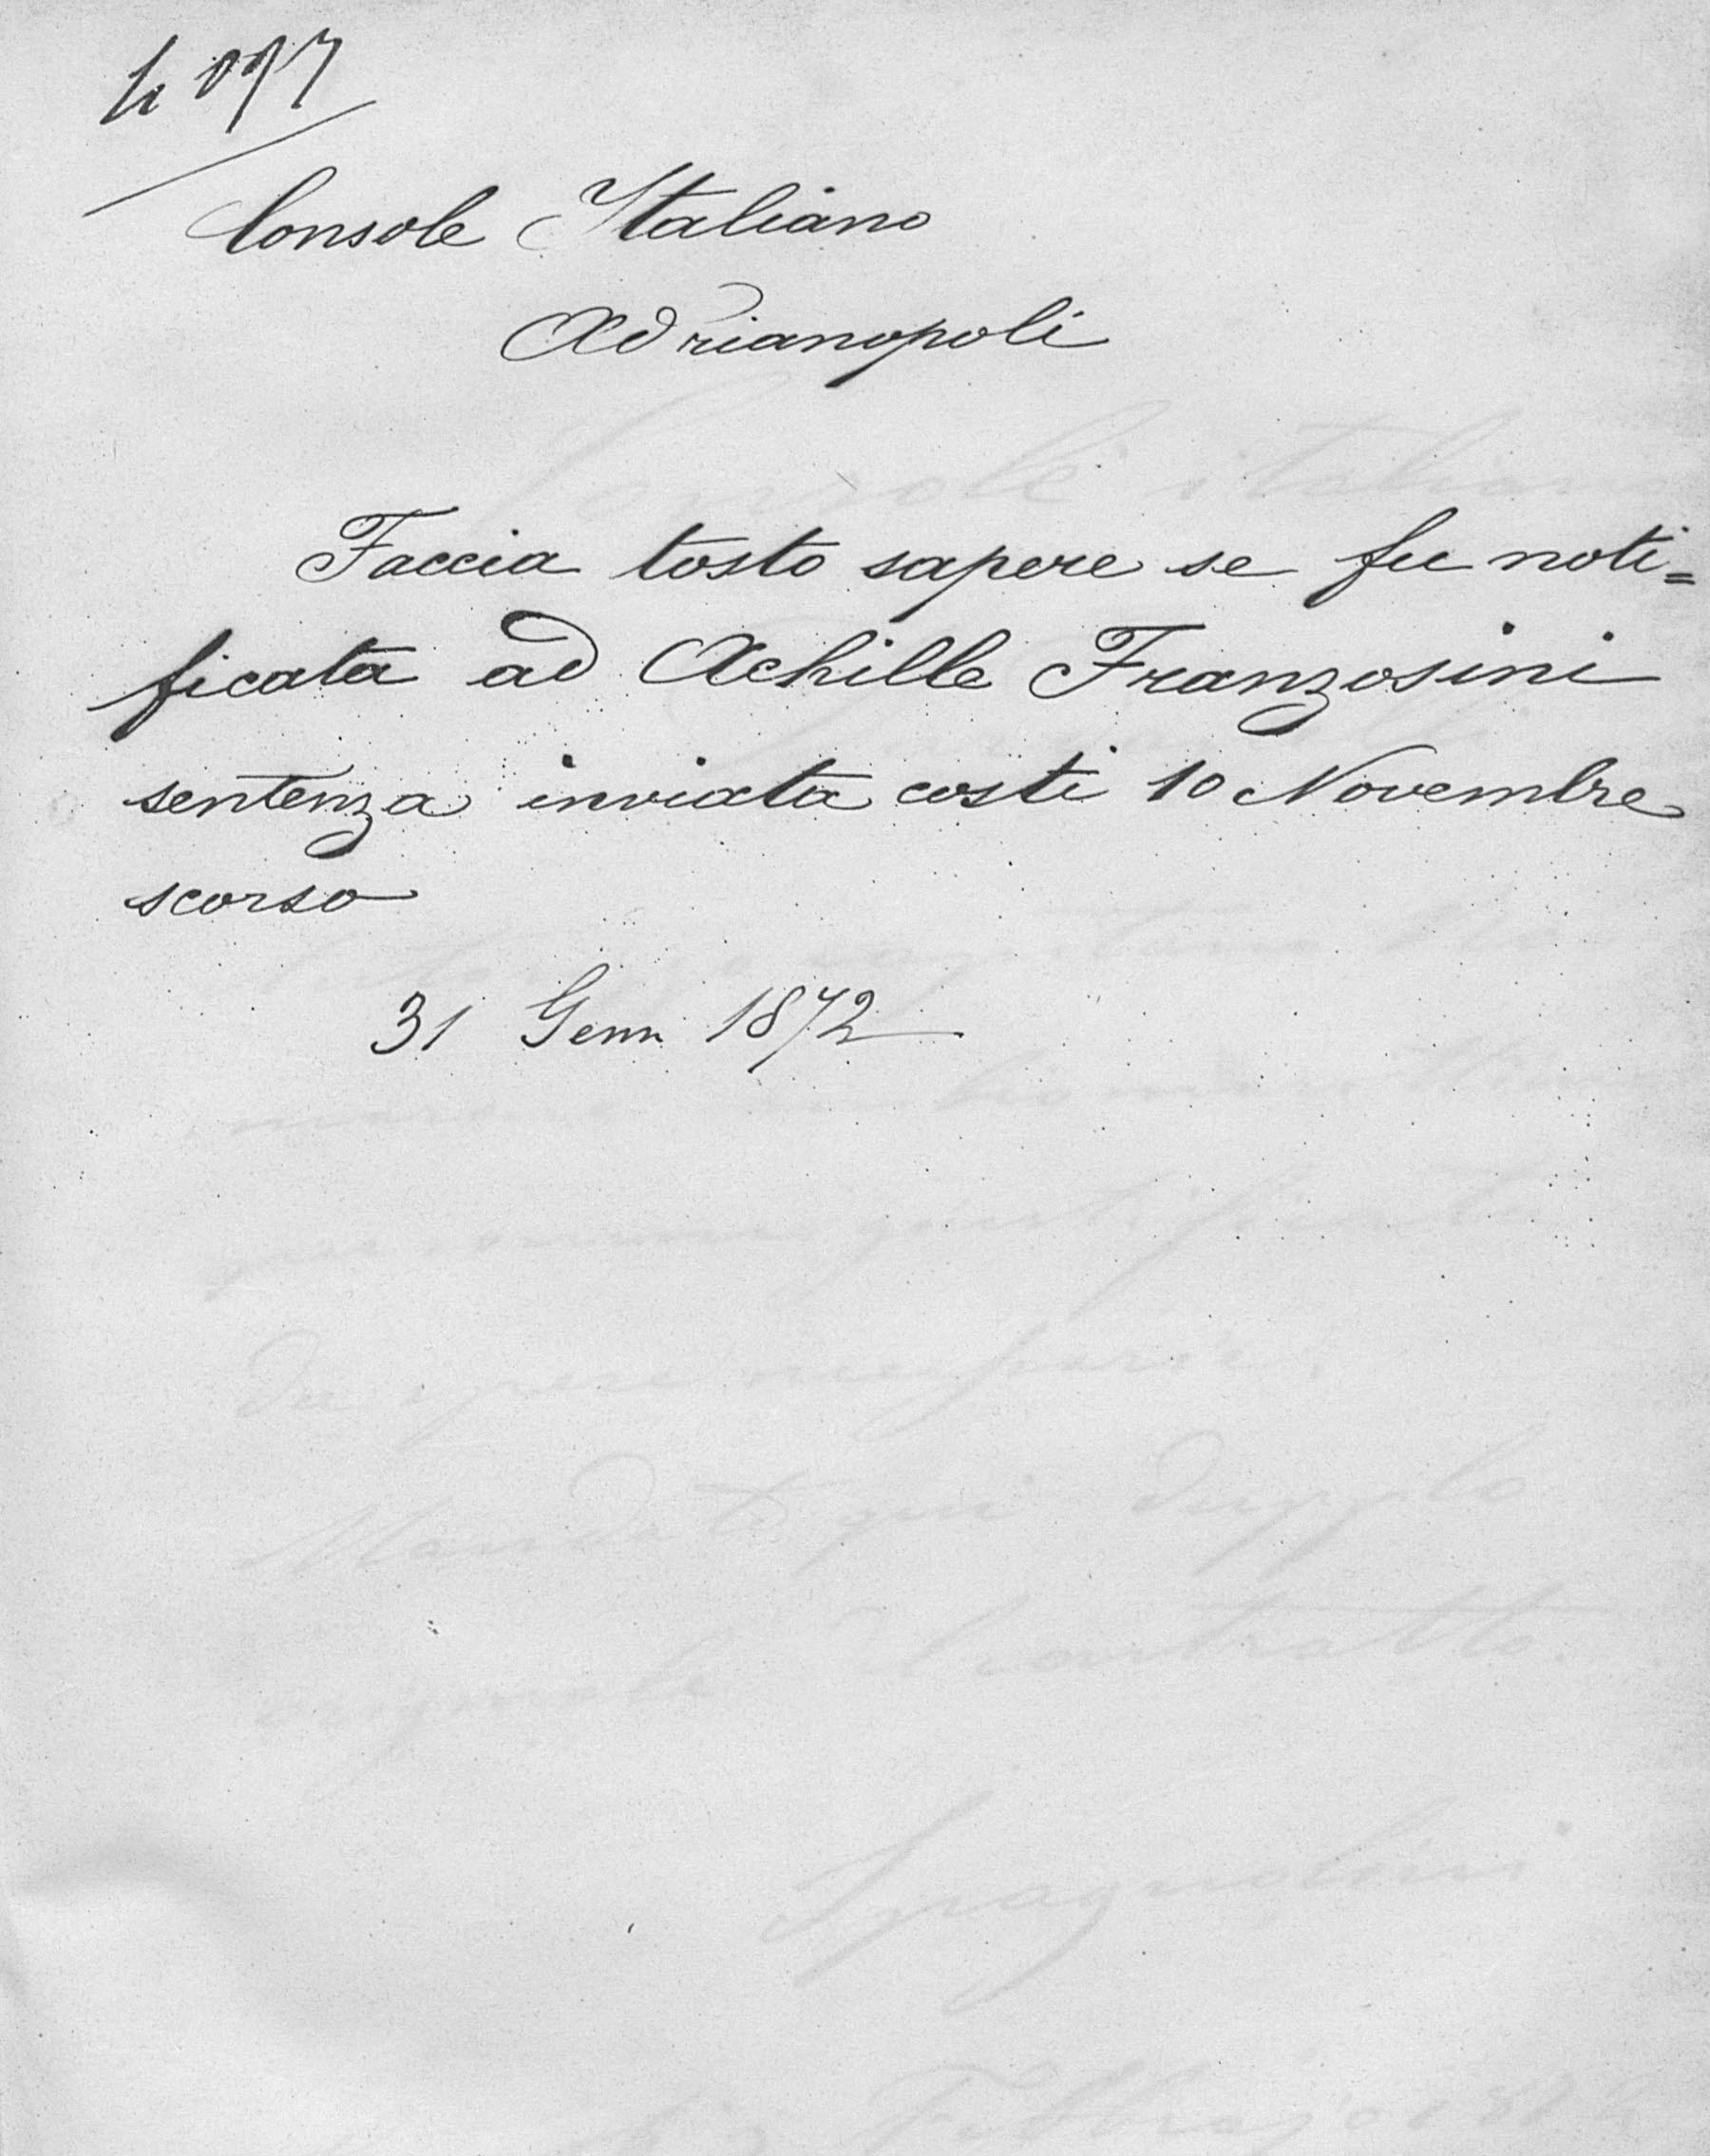 4097
Console Italiano
Adrianopoli
Faccia tosto sapere se fu noti=
ficata ad Achille Franzosini
sentenza inviata costi 10 Novembre
scorso
31 Genn 1872